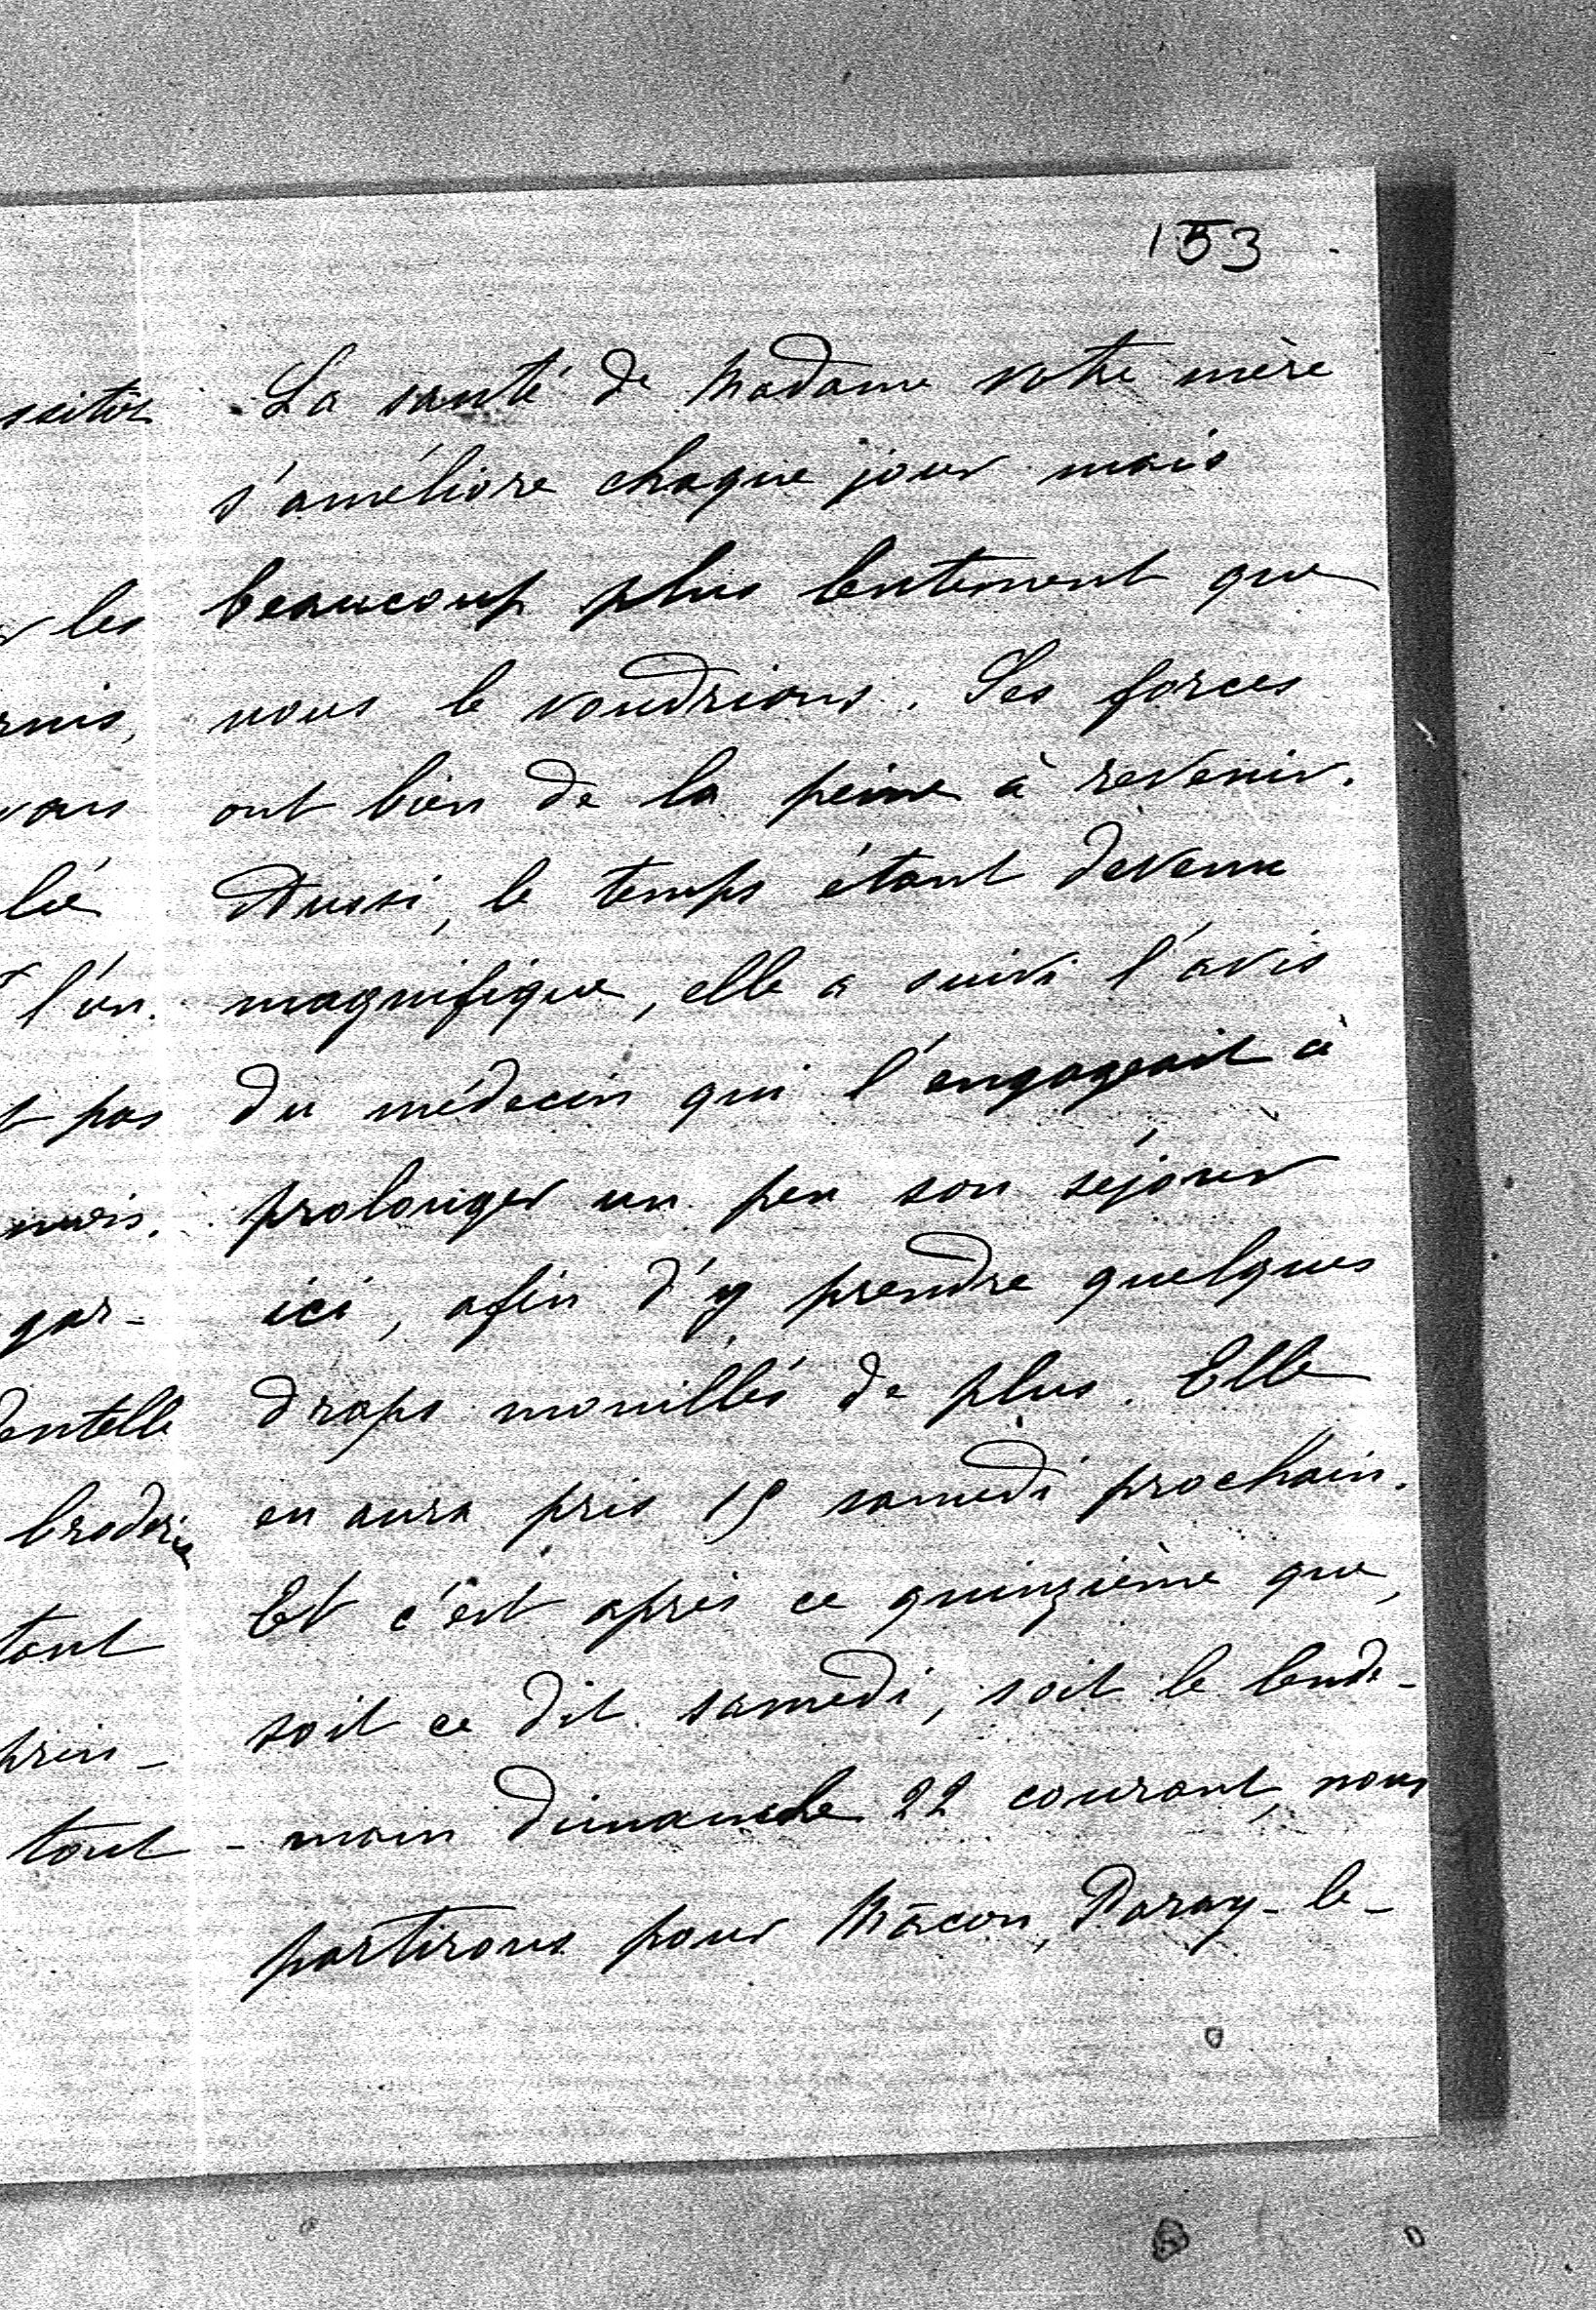 153
La santé de Madame votre mère
s'améliore chaque jour mais
beaucoup plus lentement que
nous le voudrions. Ses forces
ont bien de la peine à revenir.
Aussi, le temps étant devenu
magnifique, elle a suivi l'avis
du médecin qui l'engageait à
prolonger un peu son séjour
ici, afin d'y prendre quelques
draps mouillés de plus. Elle
en aura pris 15 samedi prochain.
Et c'est après ce quinzième que,
soit ce dit samedi, soit le lende-
-main dimanche 22 courant, nous
partirons pour Mâcon, Paray-le-
les
vous
l'on
pas
gar-
dentelle
broderie
tant
prin-
tout